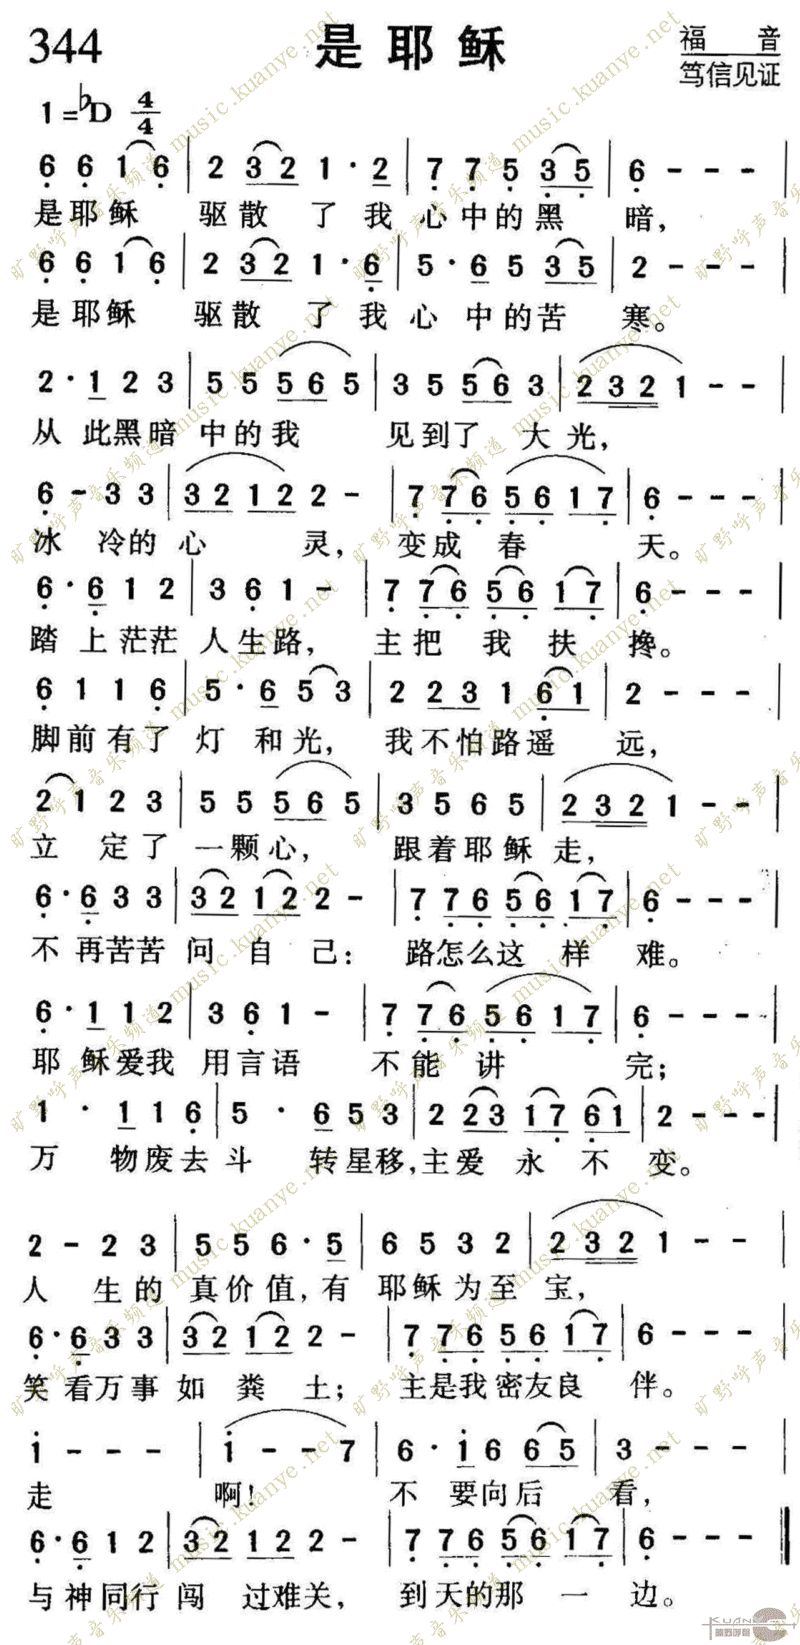 344 是耶稣 福音
笃信见证
1=♭D 4/4
6 6 1 6 | 2 3 2 1 · 2 | 7 7 5 3 5 | 6 - - - |
是耶稣 驱散了我心中的黑暗,
6 6 1 6 | 2 3 2 1 · 6 | 5 · 6 5 3 5 | 2 - - - |
是耶稣 驱散了我心中的苦寒。
2 · 1 2 3 | 5 5 5 6 5 | 3 5 5 6 3 | 2 3 2 1 - - |
从此黑暗中的我 见到了大光,
6 - 3 3 | 3 2 1 2 2 - | 7 7 6 5 6 1 7 | 6 - - - |
冰冷的心灵, 变成春天。
6 · 6 1 2 | 3 6 1 - | 7 7 6 5 6 1 7 | 6 - - - |
踏上茫茫人生路, 主把我扶搀。
6 1 1 6 | 5 · 6 5 3 | 2 2 3 1 6 1 | 2 - - - |
脚前有了灯和光, 我不怕路遥远,
2 1 2 3 | 5 5 5 6 5 | 3 5 6 5 | 2 3 2 1 - - |
立定了一颗心, 跟着耶稣走,
6 · 6 3 3 | 3 2 1 2 2 - | 7 7 6 5 6 1 7 | 6 - - - |
不再苦苦问自己: 路怎么这样难。
6 · 1 1 2 | 3 6 1 - | 7 7 6 5 6 1 7 | 6 - - - |
耶稣爱我用言语 不能讲完;
1 · 1 1 6 | 5 · 6 5 3 | 2 2 3 1 7 6 1 | 2 - - - |
万物废去斗转星移,主爱永不变。
2 - 2 3 | 5 5 6 · 5 | 6 5 3 2 | 2 3 2 1 - - |
人生的真价值,有耶稣为至宝,
6 · 6 3 3 | 3 2 1 2 2 - | 7 7 6 5 6 1 7 | 6 - - - |
笑看万事如粪土; 主是我密友良伴。
1 - - - | 1 - - 7 | 6 · 1 6 6 5 | 3 - - - |
走啊! 不要向后看,
6 · 6 1 2 | 3 2 1 2 2 - | 7 7 6 5 6 1 7 | 6 - - - ‖
与神同行闯过难关, 到天的那一边。
旷野呼声音乐频道 music.kuanye.net